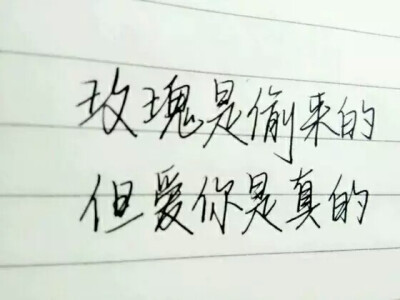 玫瑰是偷来的
但爱你是真的